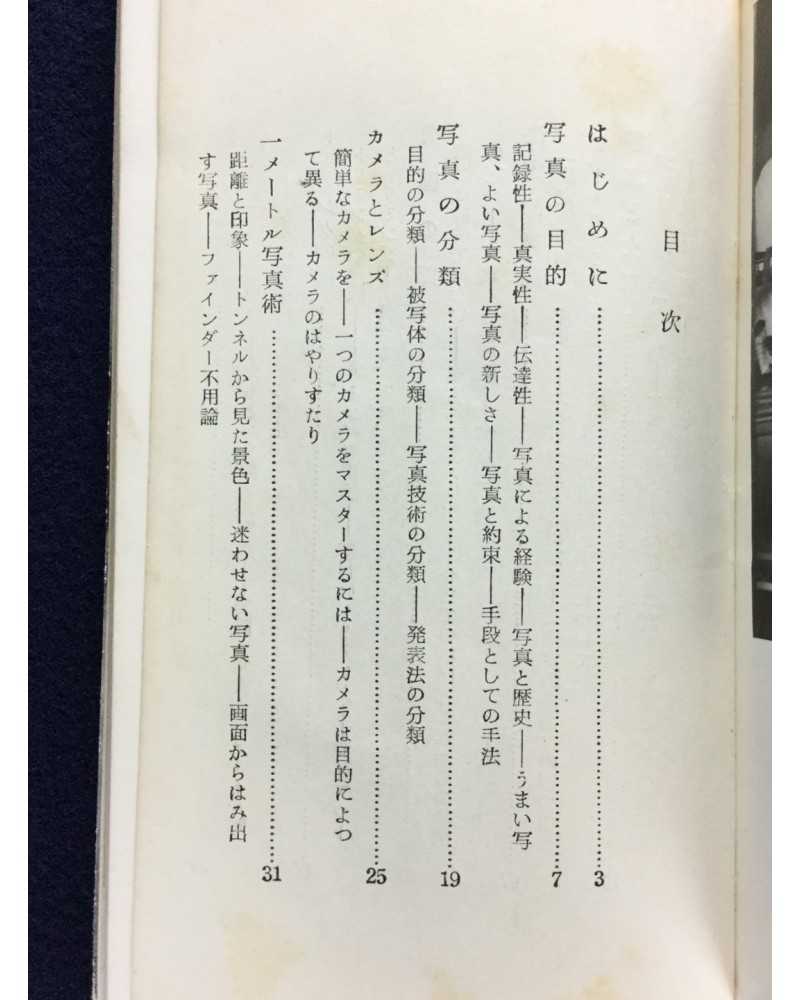 目次
はじめに……………………………3
写真の目的……………………………7
記録性――真実性――伝達性――写真による経験――写真と歴史――うまい写
真、よい写真――写真の新しさ――写真と約束――手段としての手法
写真の分類……………………………19
目的の分類――被写体の分類――写真技術の分類――発表法の分類
カメラとレンズ……………………………25
簡単なカメラを――一つのカメラをマスターするには――カメラは目的によつ
て異る――カメラのはやりすたり
一メートル写真術……………………………31
距離と印象――トンネルから見た景色――迷わせない写真――画面からはみ出
す写真――ファインダー不用論